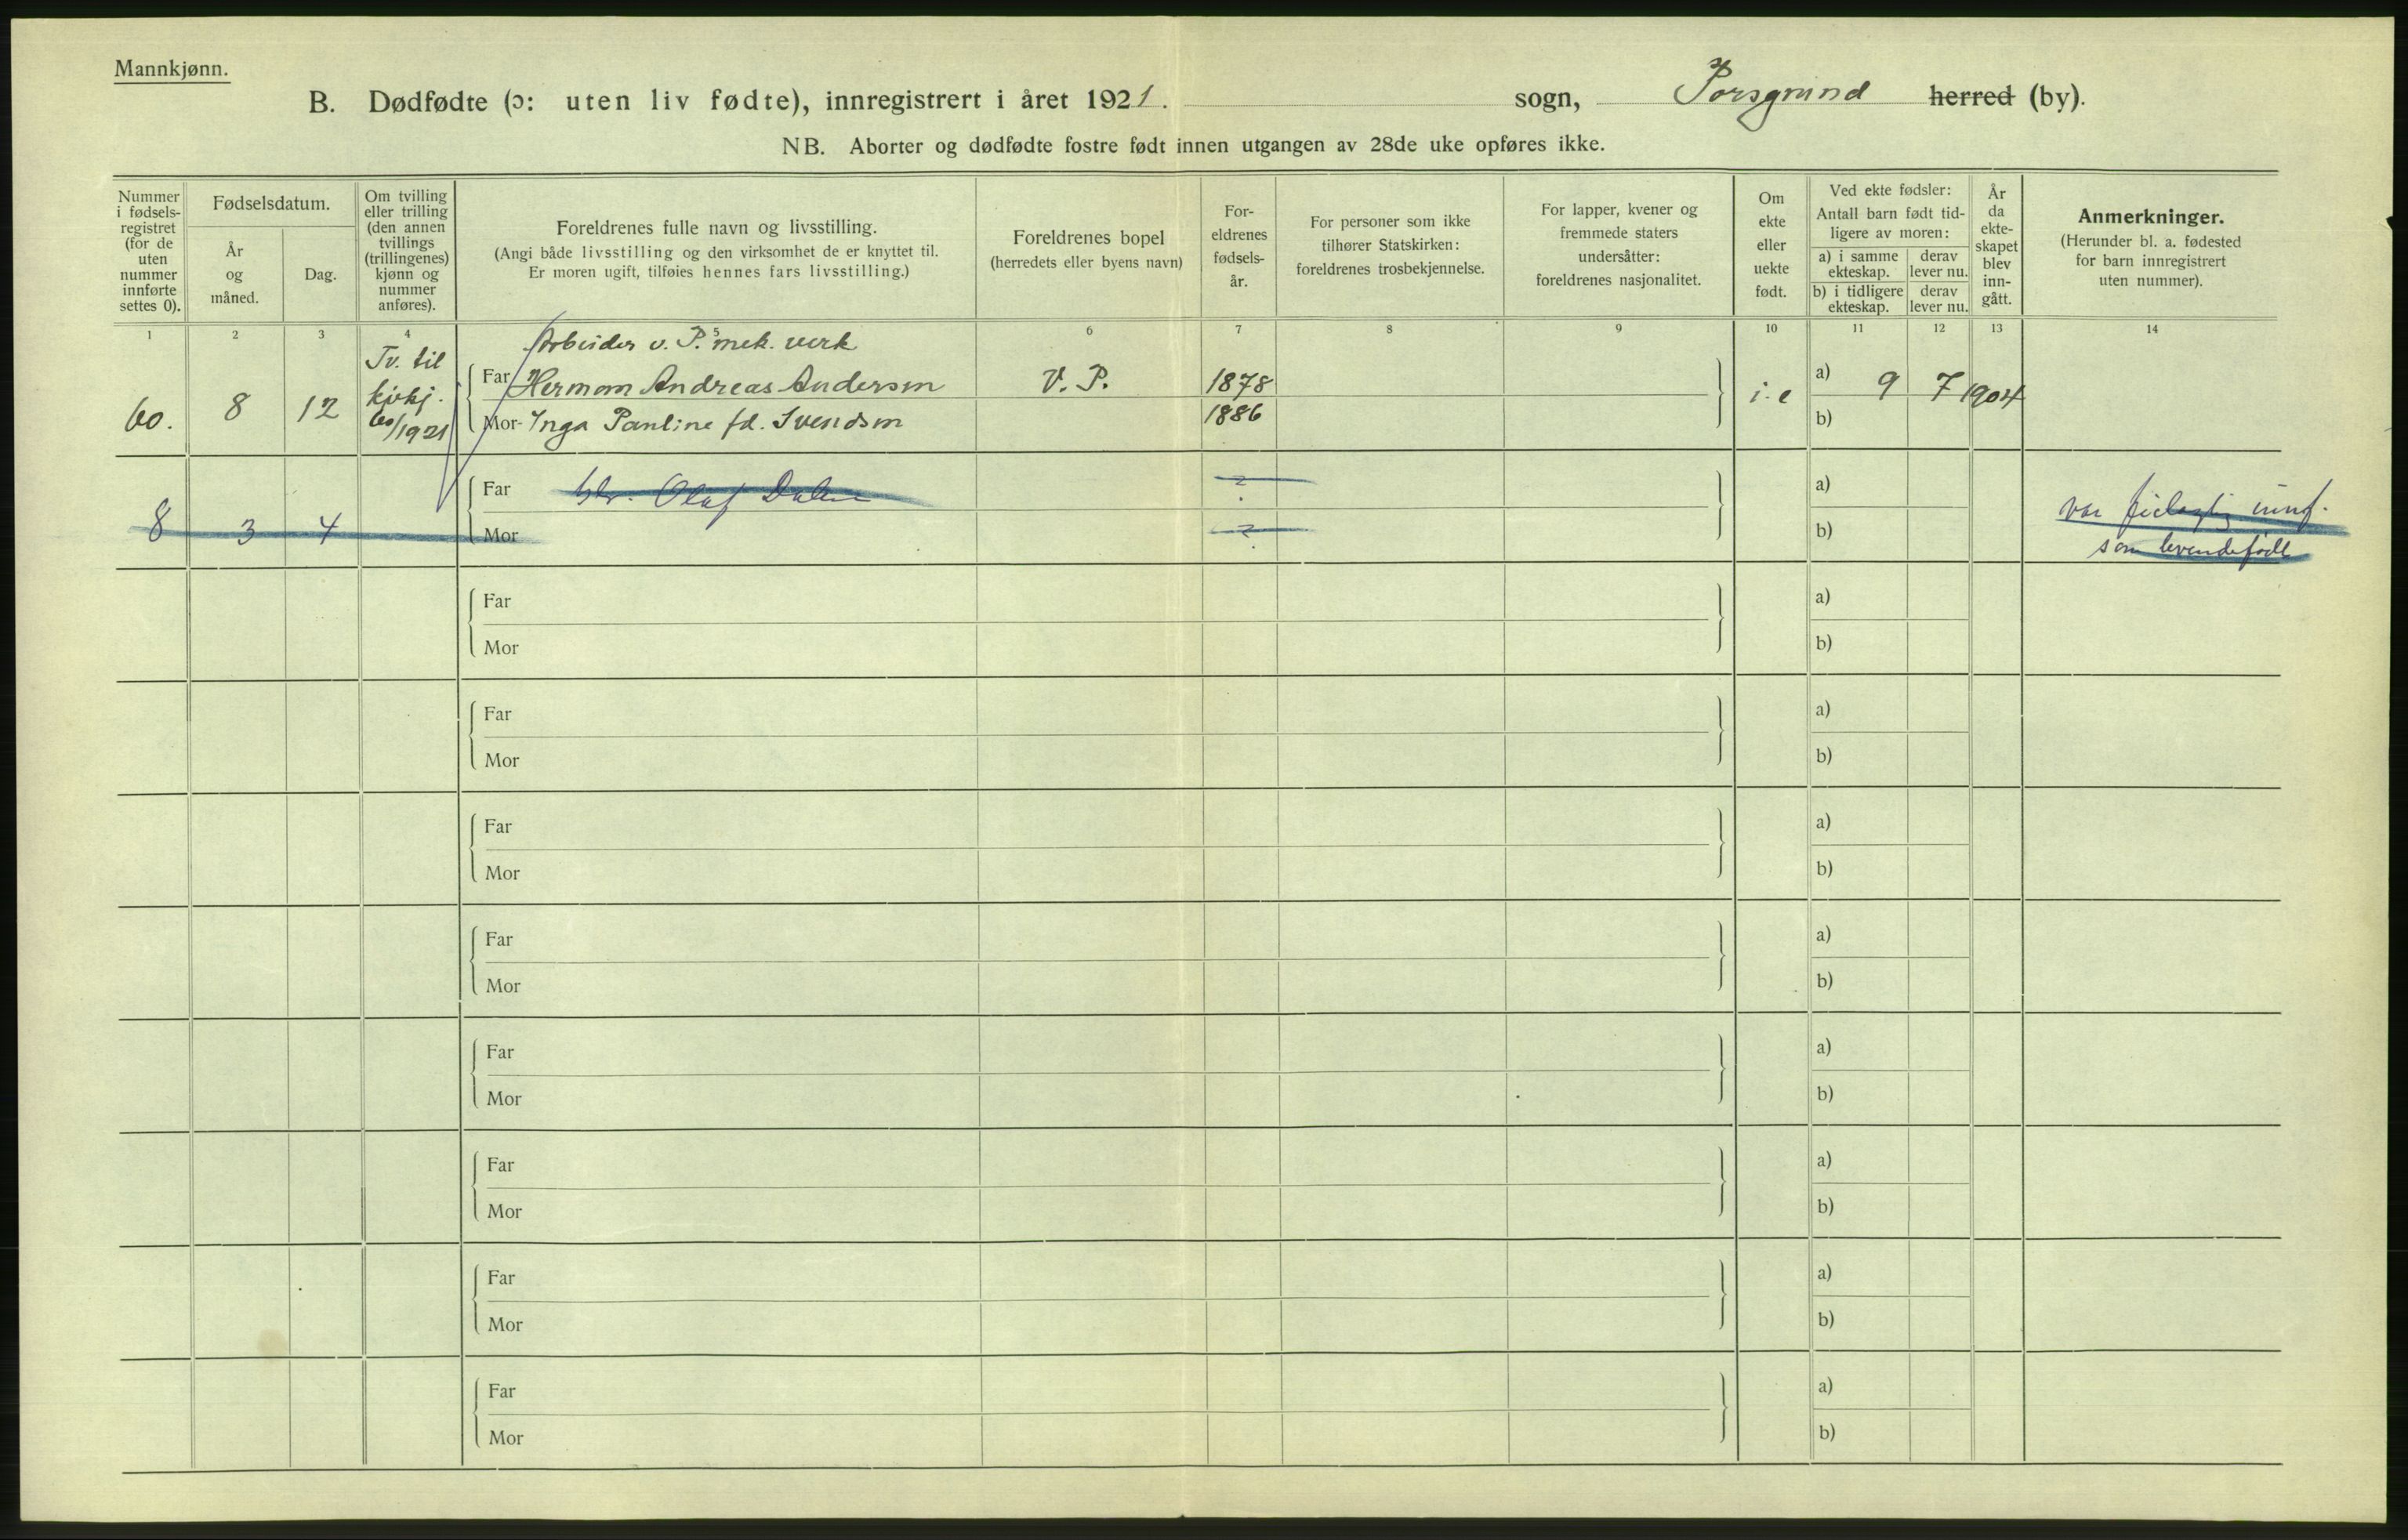 Mannkjønn.
B. Dødfødte (ɔ: uten liv fødte), innregistrert i året 1921. sogn, Porsgrund herred (by).
NB. Aborter og dødfødte fostre født innen utgangen av 28de uke opføres ikke.
Nummer i fødsels-registret (for de uten nummer innførte settes 0).
Fødselsdatum.
År og måned.
Dag.
Om tvilling eller trilling (den annen tvillings (trillingenes) kjønn og nummer anføres).
Foreldrenes fulle navn og livsstilling.
(Angi både livsstilling og den virksomhet de er knyttet til.
Er moren ugift, tilføies hennes fars livsstilling.)
Foreldrenes bopel
(herredets eller byens navn)
For-eldrenes fødsels-år.
For personer som ikke tilhører Statskirken: foreldrenes trosbekjennelse.
For lapper, kvener og fremmede staters undersåtter: foreldrenes nasjonalitet.
Om ekte eller uekte født.
Ved ekte fødsler:
Antall barn født tid-ligere av moren:
a) i samme ekteskap.
derav lever nu.
b) i tidligere ekteskap.
derav lever nu.
År da ekte-skapet blev inn-gått.
Anmerkninger.
(Herunder bl. a. fødested for barn innregistrert uten nummer).
1 2 3 4 6 7 8 9 10 11 12 13 14
Arbeider v. P.s mek. verk
60. 8 12 Tv. til
60/1921
Far Herman Andreas Andersen V. P. 1878 i. e a) 9 7 1904
Mor Inga Pauline fd. Svendsen 1886 b)
8 3 4
Far Olaf Dalen ? a)
Mor ? b)
var feilagtig innf.
som levendefødt
Far a)
Mor b)
Far a)
Mor b)
Far a)
Mor b)
Far a)
Mor b)
Far a)
Mor b)
Far a)
Mor b)
Far a)
Mor b)
Far a)
Mor b)